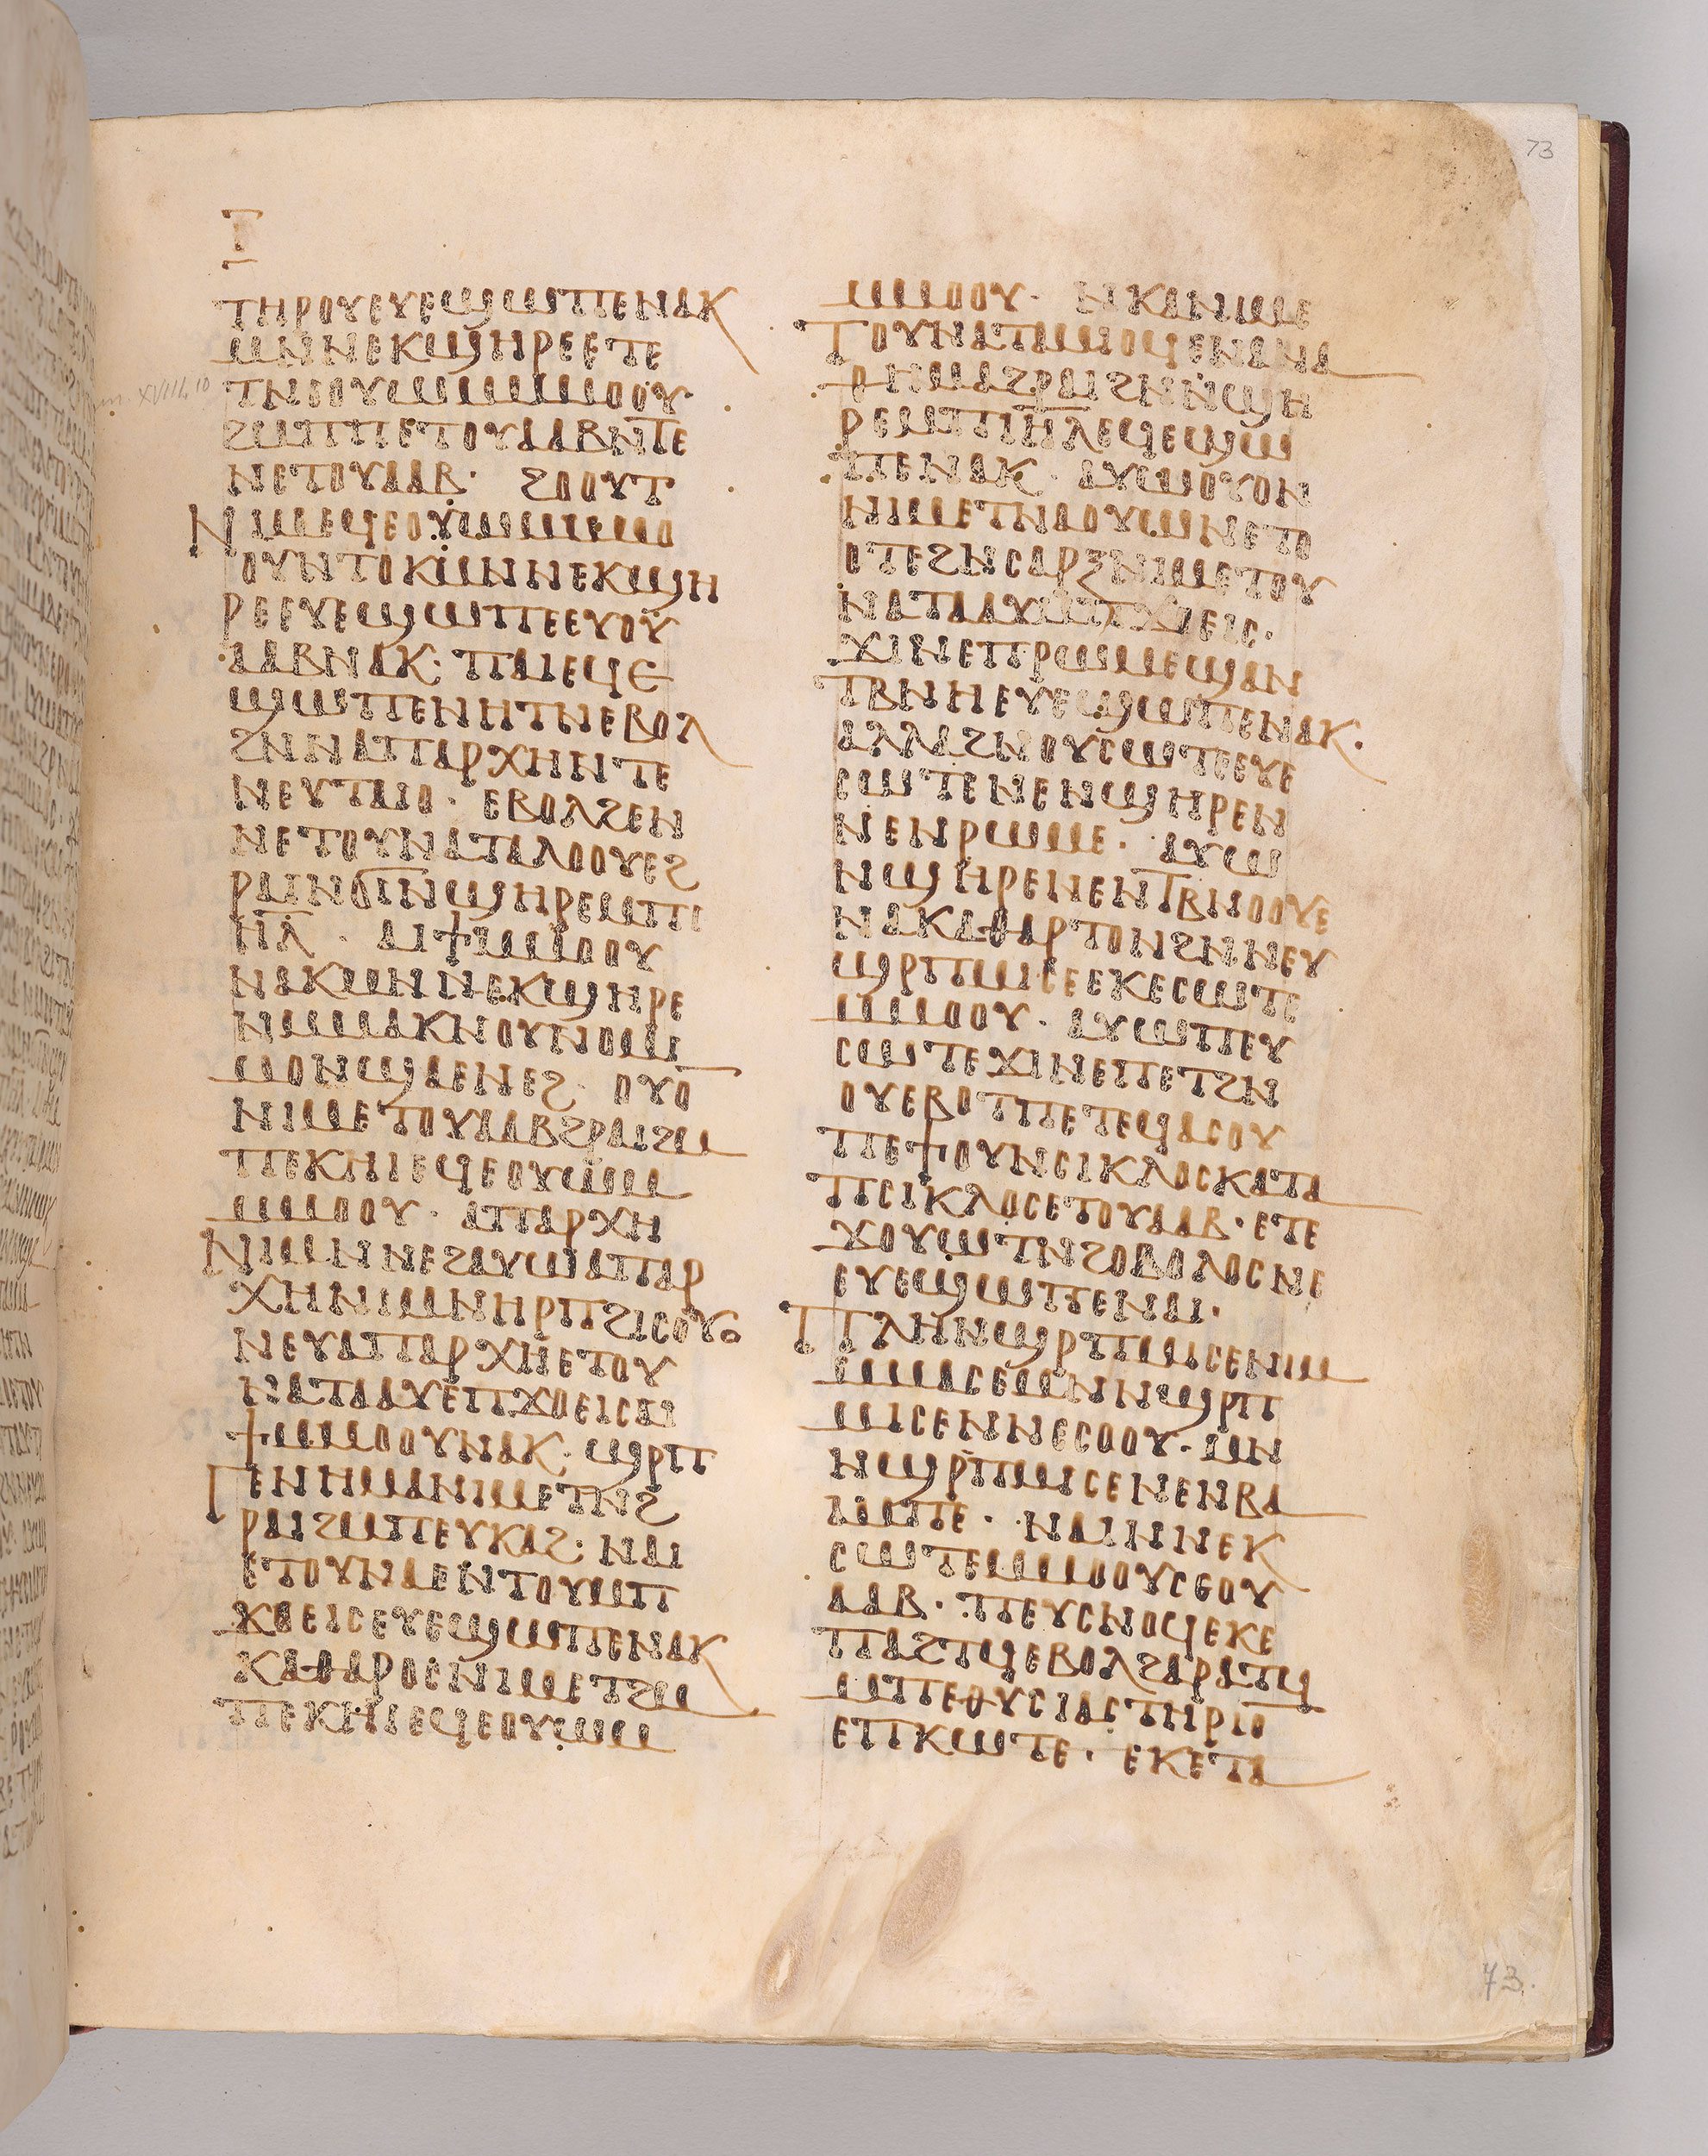 73
ⲧⲏⲣⲟⲩⲉⲩⲉϣⲱⲡⲉⲛⲁⲕ
ⲙⲛⲛⲉⲕϣⲏⲣⲉⲉⲧⲉ
ⲧⲛⲟⲩⲱⲙⲙⲙⲟⲟⲩ·
ϩⲙⲡⲡⲉⲧⲟⲩⲁⲁⲃⲛⲧⲉ
ⲛⲉⲧⲟⲩⲁⲁⲃ· ϩⲟⲟⲩⲧ
ⲛⲓⲙⲉϥⲉⲟⲩⲱⲙⲙⲙⲟ
ⲟⲩⲛⲧⲟⲕⲙⲛⲛⲉⲕϣⲏ
ⲣⲉⲉⲩⲉϣⲱⲡⲉⲉⲩⲟⲩ
ⲁⲁⲃⲛⲁⲕ· ⲡⲁⲓⲉϥⲉ
ϣⲱⲡⲉⲛⲏⲧⲛⲉⲃⲟⲗ
ϩⲛⲛⲁⲡⲁⲣⲭⲏⲛⲧⲉ
ⲛⲉⲩⲧⲁⲓⲟ· ⲉⲃⲟⲗϩⲉⲛ
ⲛⲉⲧⲟⲩⲛⲁⲧⲁⲗⲟⲟⲩⲉϩ
ⲣⲁⲓⲛϭⲓⲛϣⲏⲣⲉⲙⲡⲓ
ⲏⲗ· ⲁⲓϯⲙⲙⲟⲟⲩ
ⲛⲁⲕⲙⲛⲛⲉⲕϣⲏⲣⲉ
ⲛⲙⲙⲁⲕⲛⲟⲩⲛⲟⲙⲓ
ⲙⲟⲛϣⲁⲉⲛⲉϩ· ⲟⲩⲟ̄
ⲛⲓⲙⲉⲧⲟⲩⲁⲁⲃϩⲣⲁⲓϩⲙ
ⲡⲉⲕⲏⲓⲉϥⲉⲟⲩⲱⲙ
ⲙⲙⲟⲟⲩ· ⲁⲡⲁⲣⲭⲏ
ⲛⲓⲙⲛⲛⲉϩⲁⲩⲱⲁⲡⲁⲣ
ⲭⲏⲛⲓⲙⲛⲏⲣⲡϩⲓⲥⲟⲩⲟ
ⲛⲉⲩⲁⲡⲁⲣⲭⲏⲉⲧⲟⲩ
ⲛⲁⲧⲁⲁⲩⲉⲡϫⲟⲉⲓⲥⲁⲓ
ϯⲙⲙⲟⲟⲩⲛⲁⲕ· ϣⲣⲡ
ⲅⲉⲛⲏⲙⲁⲛⲓⲙⲉⲧⲛϩ
ⲣⲁⲓϩⲙⲡⲉⲩⲕⲁϩ· ⲛⲁⲓ
ⲉⲧⲟⲩⲛⲁⲉⲛⲧⲟⲩⲙⲡ
ϫⲟⲉⲓⲥⲉⲩⲉϣⲱⲡⲉⲛⲁⲕ
ⲕⲁⲑⲁⲣⲟⲥⲛⲓⲙⲉⲧϩⲙ
ⲡⲉⲕⲏⲓⲉϥⲉⲟⲩⲱⲙ
ⲙⲙⲟⲟⲩ· ⲛⲕⲁⲛⲓⲙⲉ
ⲧⲟⲩⲛⲁⲧⲙⲙⲟϥⲉⲛⲁⲛⲁ
ⲑⲏⲙⲁϩⲣⲁⲓϩⲛⲛϣⲏ
ⲣⲉⲙⲡⲓⲏⲗⲉϥⲉϣⲱ
ⲡⲉⲛⲁⲕ· ⲁⲩⲱⲟⲩⲟⲛ
ⲛⲓⲙⲉⲧⲛⲁⲟⲩⲱⲛⲉⲧⲟ
ⲟⲧⲉϩⲛⲥⲁⲣⲝⲛⲓⲙⲉⲧⲟⲩ
ⲛⲁⲧⲁⲁⲩⲙⲡϫⲟⲉⲓⲥ·
ϫⲓⲛⲉⲡⲣⲱⲙⲉϣⲁⲛ
ⲧⲃⲛⲏⲉⲩⲉϣⲱⲡⲉⲛⲁⲕ·
ⲁⲗⲗⲁϩⲛⲟⲩⲥⲱⲧⲉⲉⲩⲉ
ⲥⲱⲧⲉⲛⲉⲛϣⲏⲣⲉⲛ
ⲛⲉⲛⲣⲱⲙⲉ· ⲁⲩⲱ
ⲛϣⲏⲣⲉⲛⲉⲛⲧⲃⲛⲟⲟⲩⲉ
ⲛⲁⲕⲁⲑⲁⲣⲧⲟⲛϩⲛⲛⲉⲩ
ϣⲣⲡⲙⲓⲥⲉⲉⲕⲉⲥⲱⲧⲉ
ⲙⲙⲟⲟⲩ· ⲁⲩⲱⲡⲉⲩ
ⲥⲱⲧⲉϫⲓⲛⲉⲡⲉⲧϩⲛ
ⲟⲩⲉⲃⲟⲧⲡⲉⲧⲉϥⲁⲥⲟⲩ
ⲡⲉϯⲟⲩⲛⲥⲓⲕⲗⲟⲥⲕⲁⲧⲁ
ⲡⲥⲓⲕⲗⲟⲥⲉⲧⲟⲩⲁⲁⲃ· ⲉⲧⲉ
ϫⲟⲩⲱⲧⲛϩⲟⲃⲟⲗⲟⲥⲛⲉ
ⲉⲩⲉϣⲱⲡⲉⲛⲁⲓ·
ⲡⲗⲏⲛϣⲣⲡⲙⲓⲥⲉⲛⲓⲙ
ⲙⲙⲁⲥⲉⲙⲛⲛϣⲣⲡ
ⲙⲓⲥⲉⲛⲛⲉⲥⲟⲟⲩ· ⲙⲛ
ⲛϣⲣⲡⲙⲓⲥⲉⲛⲉⲛⲃⲁ
ⲁⲙⲡⲉ· ⲛⲁⲓⲛⲛⲉⲕ
ⲥⲱⲧⲉⲙⲙⲟⲟⲩⲥⲉⲟⲩ
ⲁⲁⲃ· ⲡⲉⲩⲥⲛⲟϥⲉⲕⲉ
ⲡⲁϩⲧϥⲉⲃⲟⲗϩⲁⲣⲁⲧϥ
ⲙⲡⲉⲑⲩⲥⲓⲁⲥⲧⲏⲣⲓⲟ̄
ⲉⲡⲕⲱⲧⲉ· ⲉⲕⲉⲧⲁ
73.